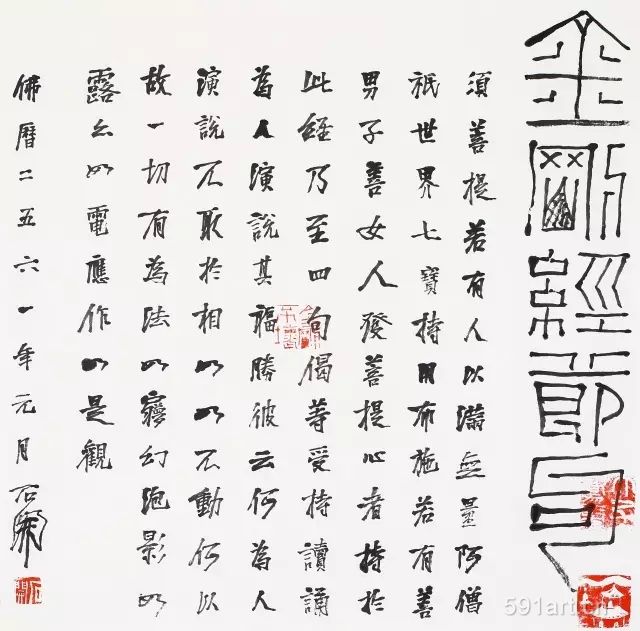 金剛經節
須菩提若有人以滿無量阿僧
祇世界七寶持用布施若有善
男子善女人發菩提心者持於
此經乃至四句偈等受持讀誦
為人演說其福勝彼云何為人
演說不取於相如如不動何以
故一切有為法如夢幻泡影如
露亦如電應作如是觀
佛曆二五六一年元月石開